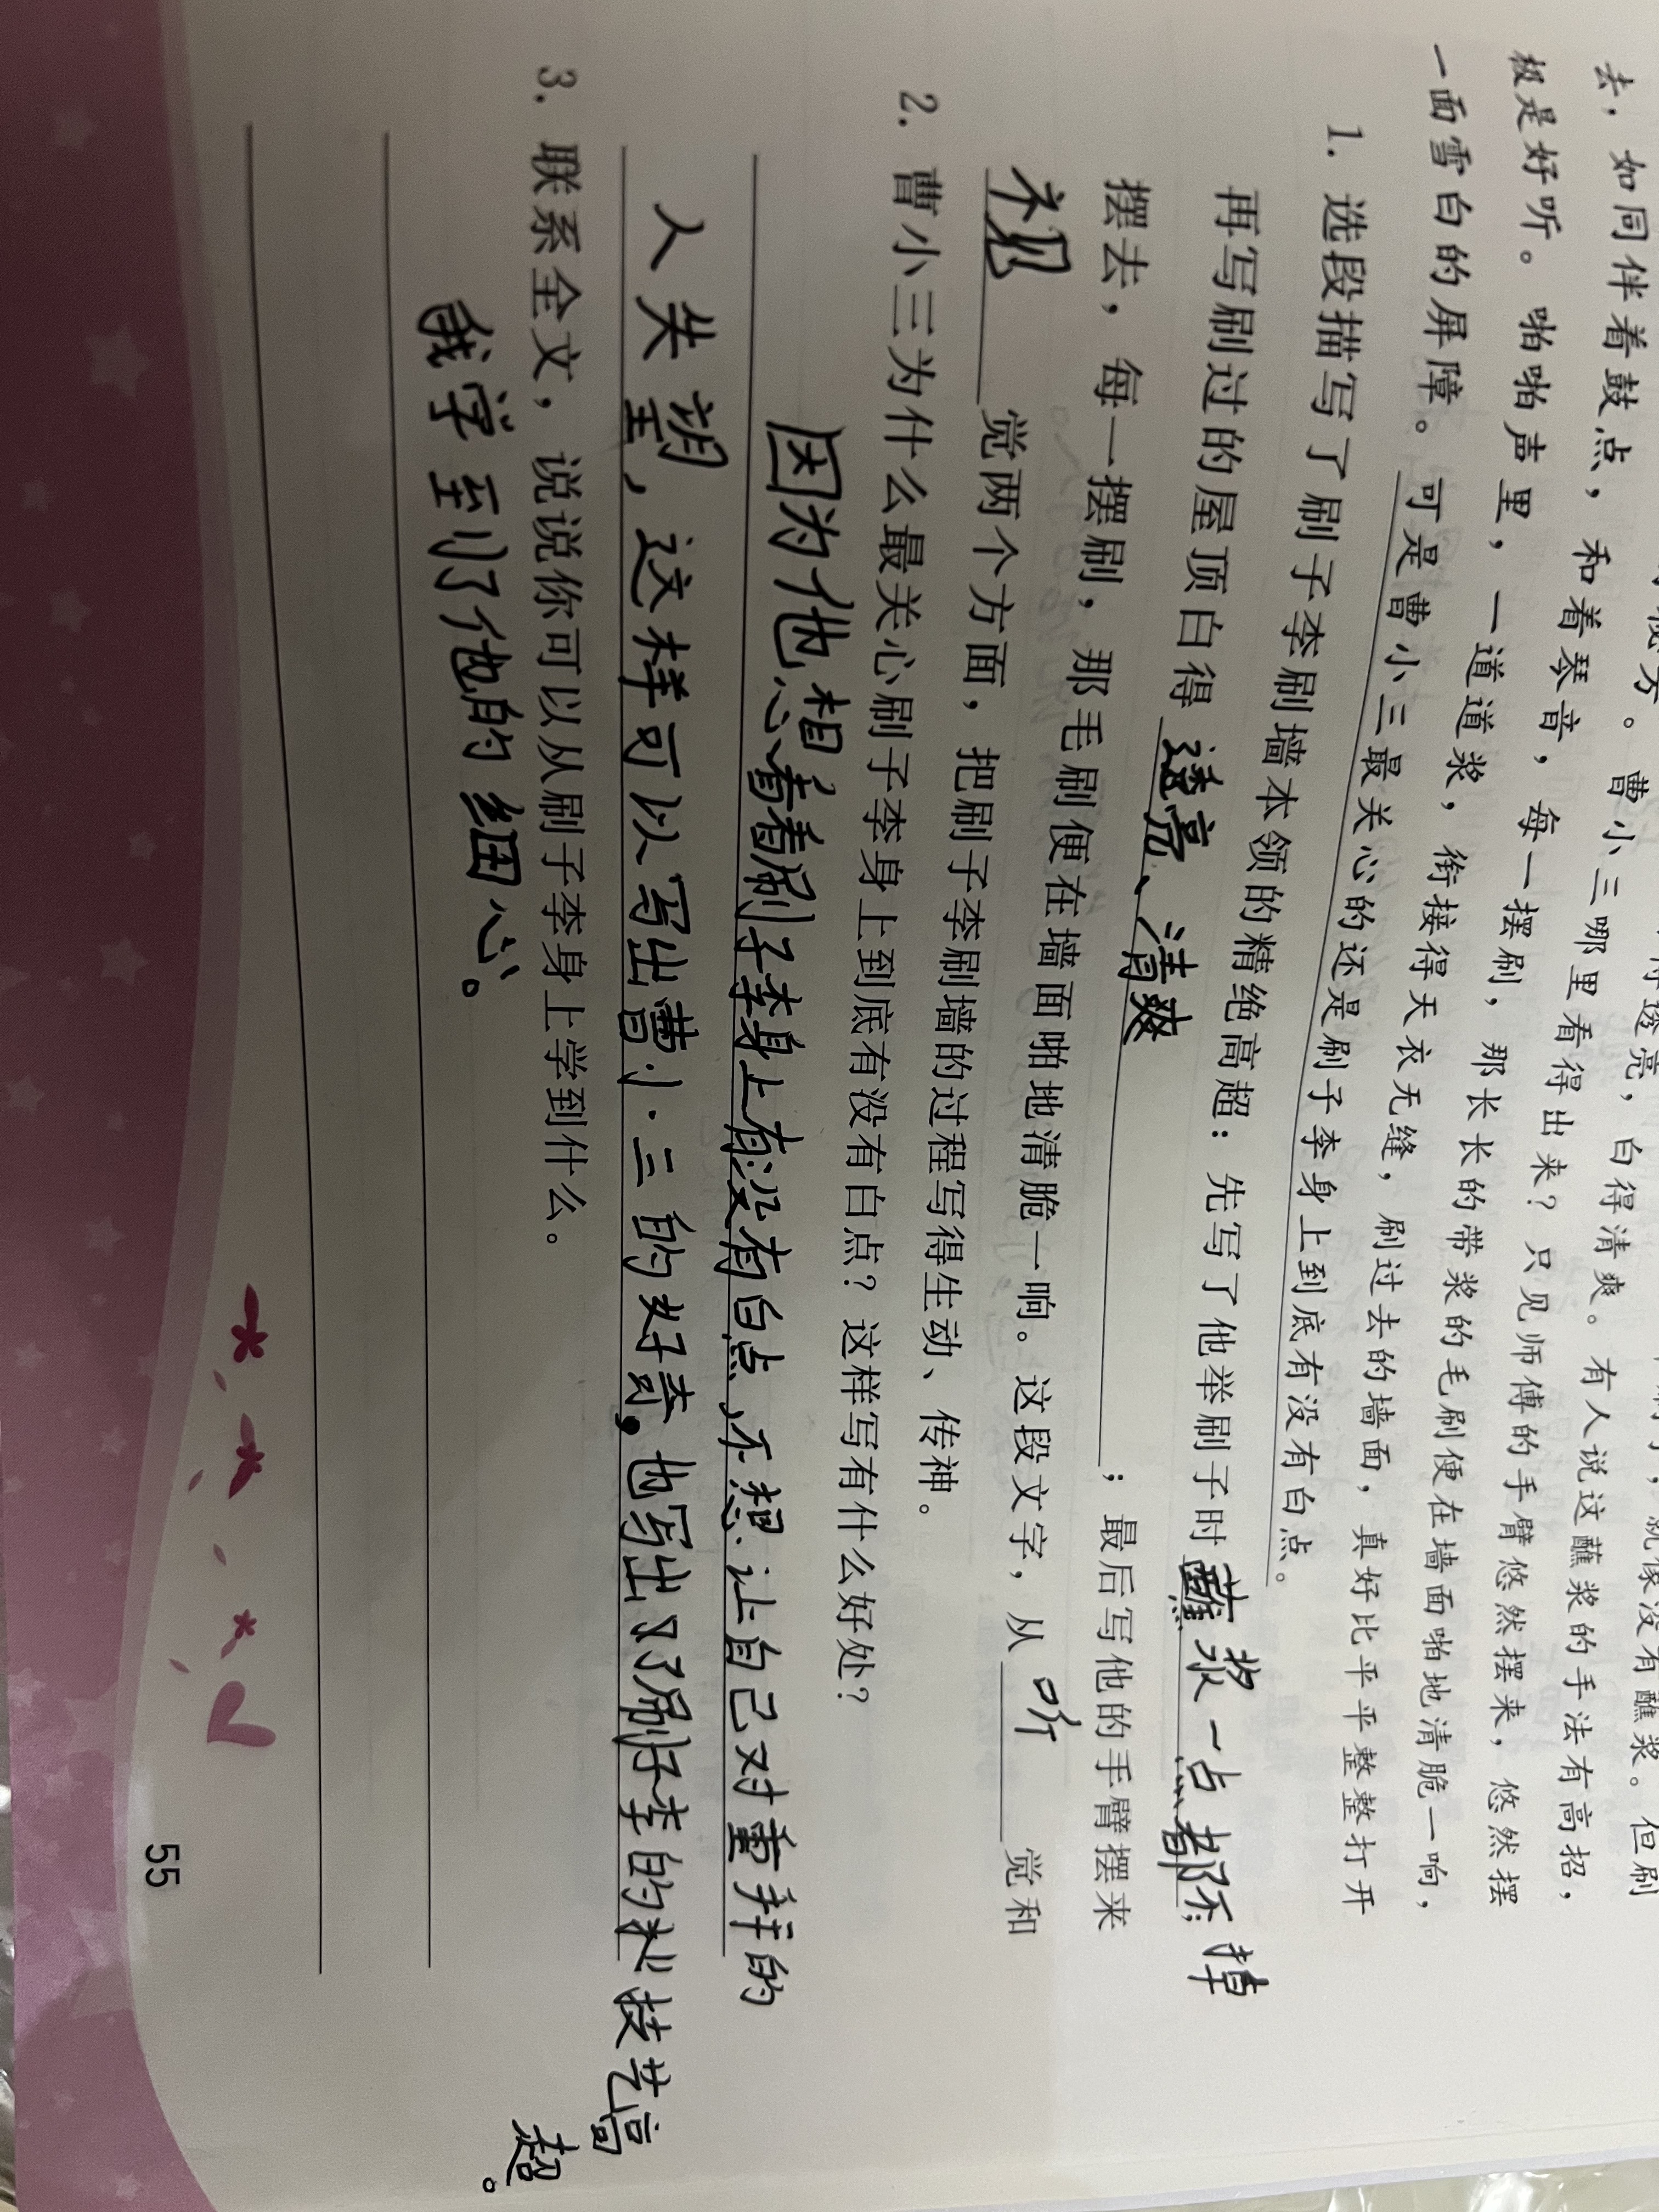 透亮，白得清爽。有人说这蘸浆的手法有高招，
去，如同伴着鼓点，和着琴音，每一摆刷，那长长的带浆的毛刷便在墙面啪地清脆一响，
极是好听。啪啪声里，一道道浆，衔接得天衣无缝，刷过去的墙面，真好比平平整整打开
一面雪白的屏障。可是曹小三最关心的还是刷子李身上到底有没有白点。
1. 选段描写了刷子李刷墙本领的精绝高超：先写了他举刷子时蘸浆一点都不掉；
再写刷过的屋顶白得透亮、清爽；最后写他的手臂摆来
摆去，每一摆刷，那毛刷便在墙面啪地清脆一响。这段文字，从听觉和
视觉两个方面，把刷子李刷墙的过程写得生动、传神。
2. 曹小三为什么最关心刷子李身上到底有没有白点？这样写有什么好处？
因为他想看看刷子李身上有没有白点，不想让自己对重拜的
人失望，这样可以写出曹小三的好奇。也写出了刷子李的技艺高
超。
3. 联系全文，说说你可以从刷子李身上学到什么。
我学到了他的细心。
55